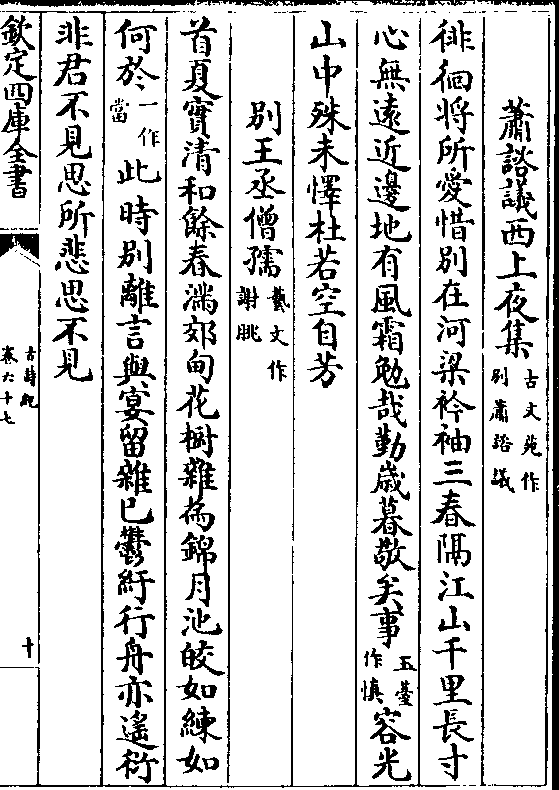 蕭諮議西上夜集古文苑作別蕭諮議
徘徊將所愛惜別在河梁衿袖三春隔江山千里長寸
心無遠近邊地有風霜勉哉勤歲暮敬矣事玉臺作慎容光
山中殊未懌杜若空自芳
別王丞僧孺藝文作謝朓
首夏實清和餘春滿郊甸花樹雜為錦月池皎如練如
何於一作當此時別離言與宴留雜已鬱紆行舟亦遙衍
非君不見思所悲思不見
欽定四庫全書
古詩紀
卷六十七
十